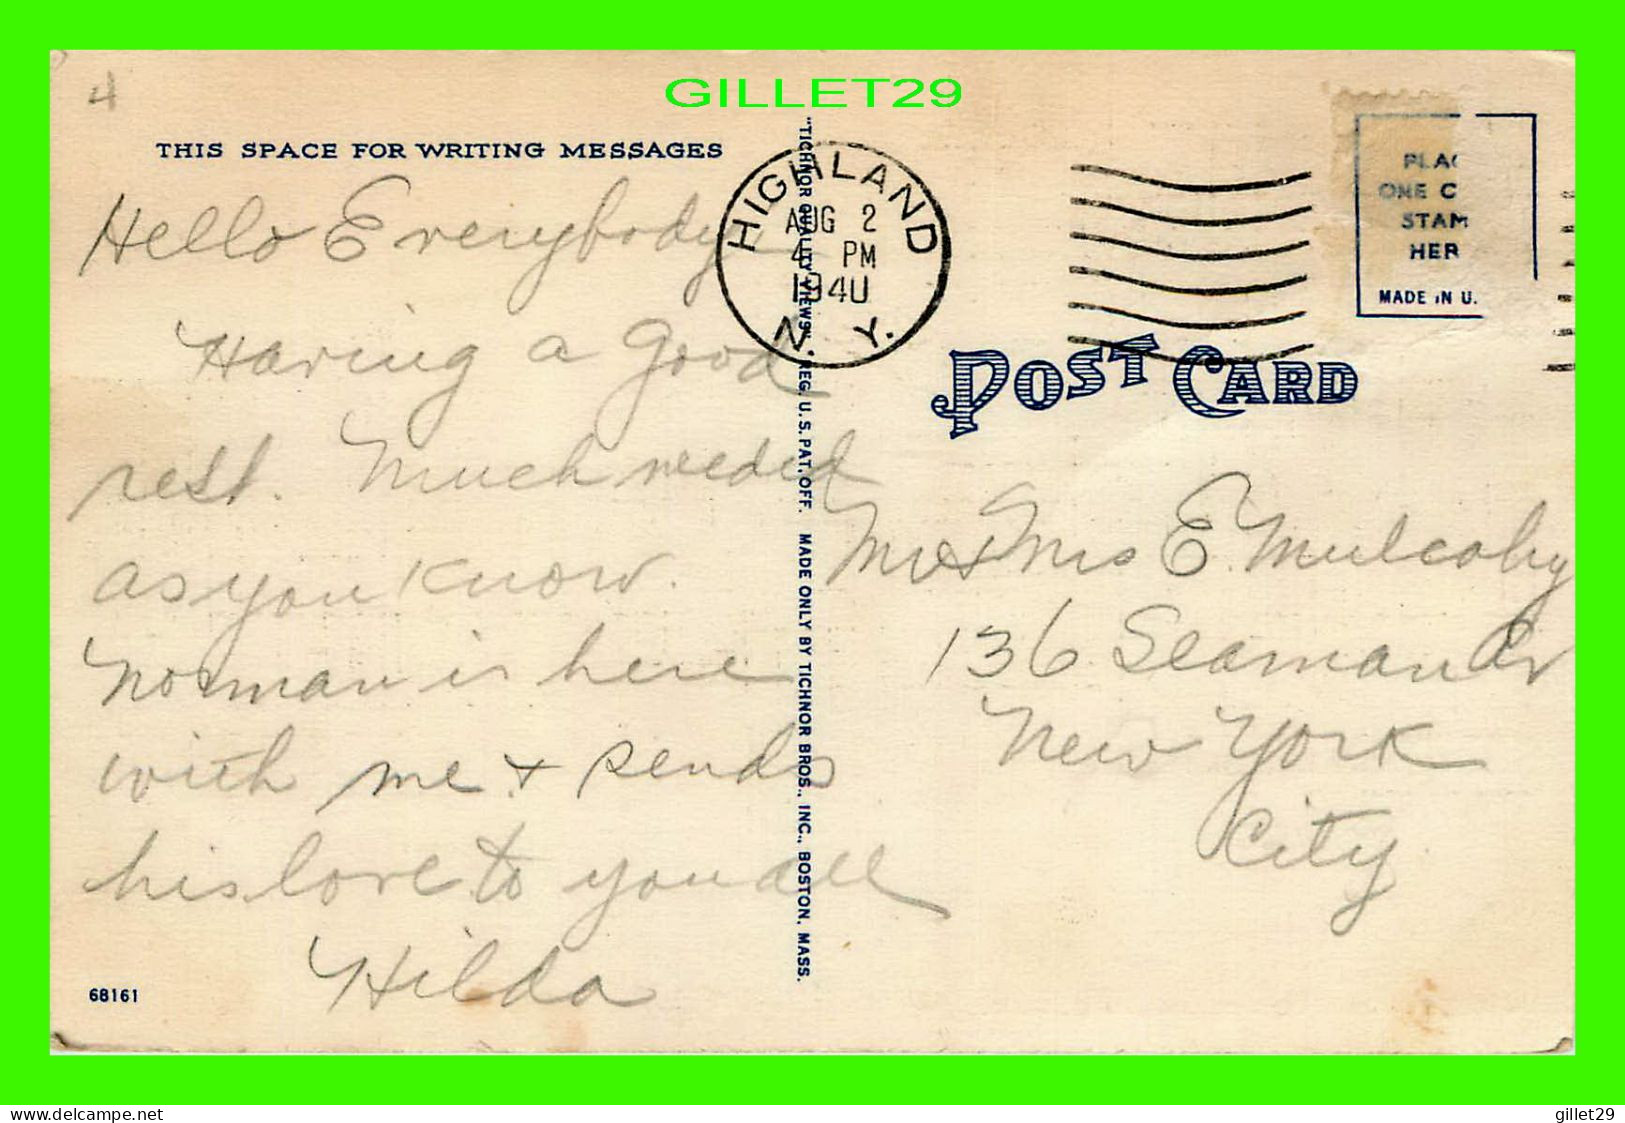 GILLET29
4
THIS SPACE FOR WRITING MESSAGES
Hello Everybody,
Having a good
rest. Much needed
as you know.
Norman is here
with me & sends
his love to you all
Hilda
68161
"TICHNOR QUALITY VIEWS," REG. U.S. PAT. OFF. MADE ONLY BY TICHNOR BROS., INC., BOSTON, MASS.
HIGHLAND
AUG 2
4 PM
1940
N. Y.
PLAC
ONE C
STAM
HER
MADE IN U.
POST CARD
Mr & Mrs E. Mulcahy
136 Seaman Av
New York
City
www.delcampe.net
gillet29